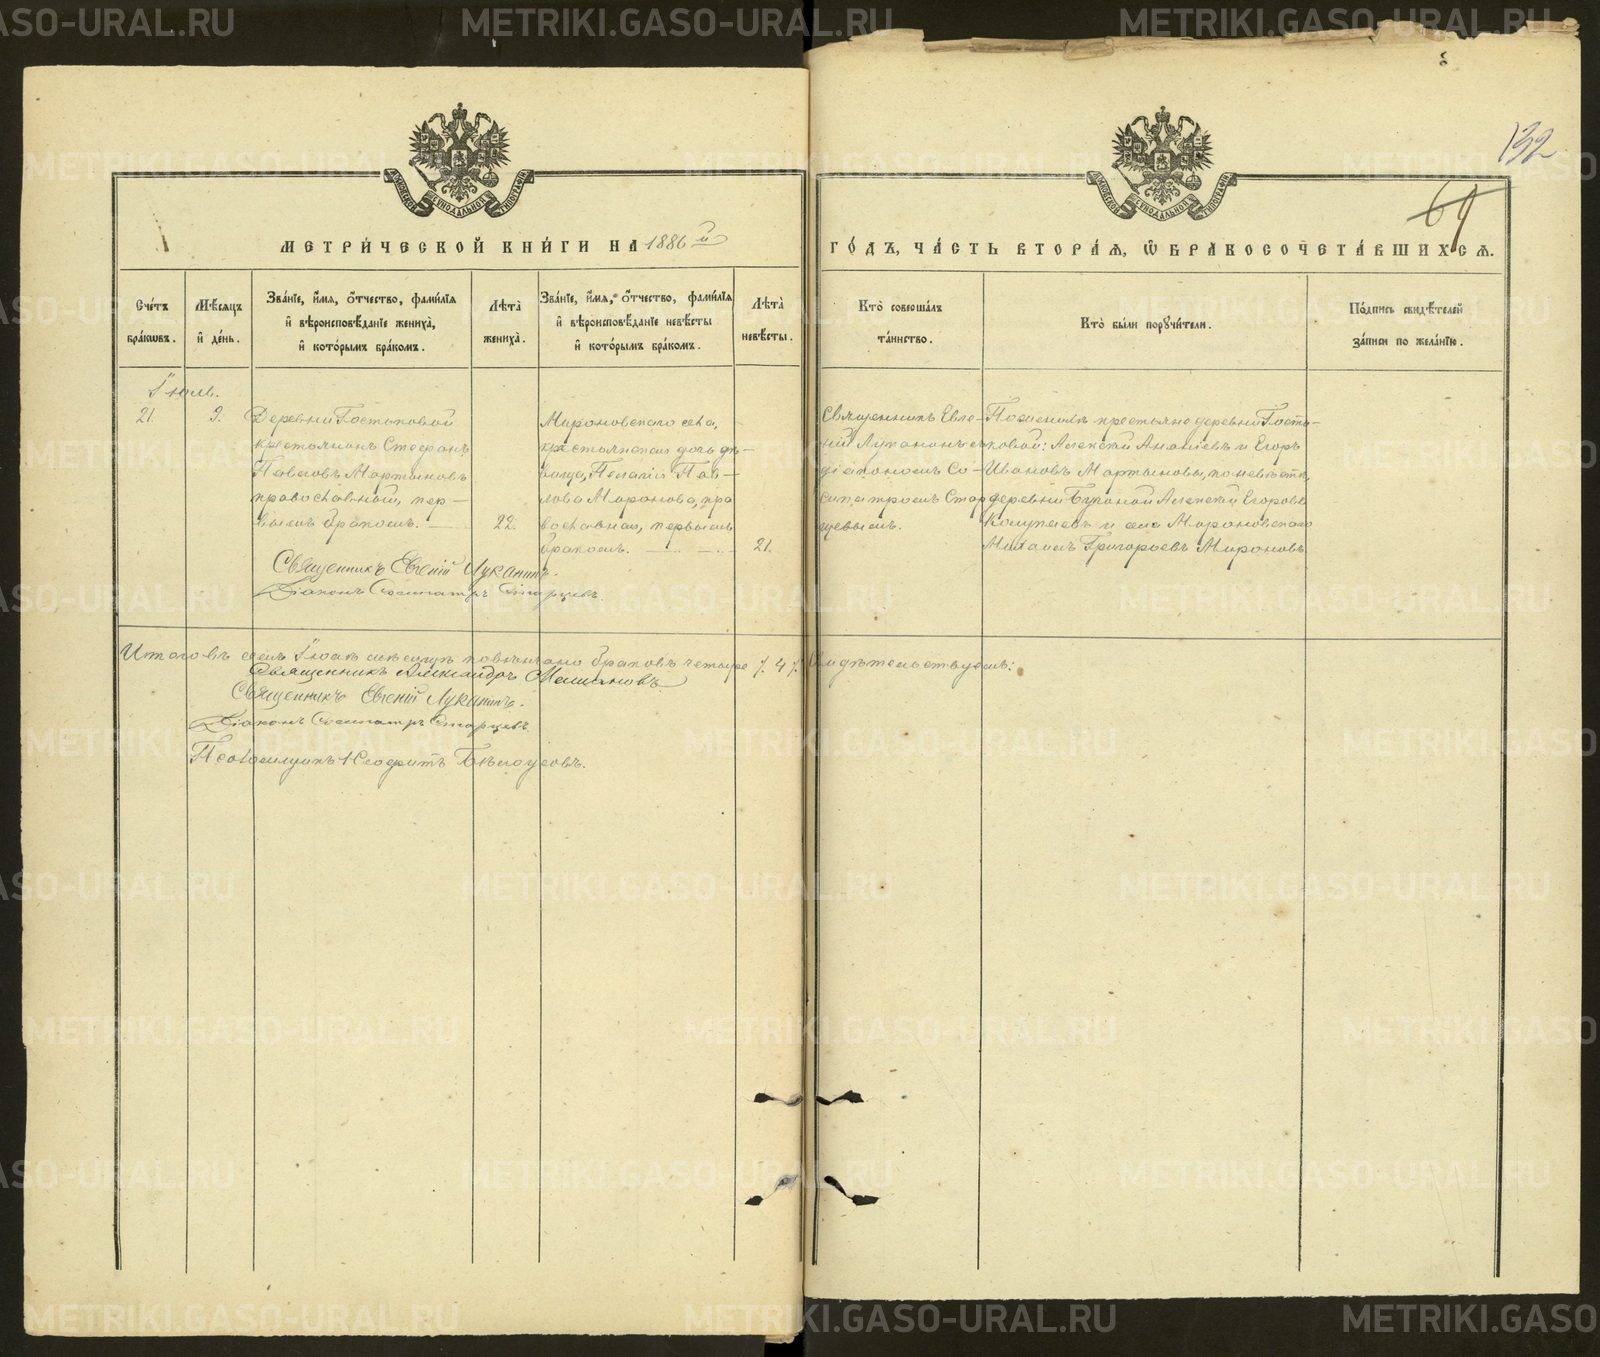 132
69
МЕТРИ́ЧЕСКОЙ КНИ́ГИ НА 1886 й
ГО́ДЪ, ЧА́СТЬ ВТОРА́Я, Ѡ БРАКОСОЧЕТА́ВШИХСѦ.
Сче́тъ бра́кωвъ.
Мѣ́сяцъ и҆ де́нь.
Зва́нїе, и҆́мя, о҆́тчество, фами́лїя
и҆ вѣроисповѣ́данїе жениха̀,
и҆ кото́рымъ бра́комъ.
Лѣта̀ жениха̀.
Зва́нїе, и҆́мя, о҆́тчество, фами́лїя
и҆ вѣроисповѣ́данїе невѣ́сты
и҆ кото́рымъ бра́комъ.
Лѣта̀ невѣ́сты.
Кто̀ соверша́лъ
та́инство.
Кто̀ бы́ли порꙋчи́тели.
По́дпись свидѣ́телей
за́писи по жела́нїю.
Іюль.
21.
9.
Деревни Гостьковой
крестьянинъ Стефанъ
Павловъ Мартыновъ
православный, пер-
вымъ бракомъ.
22.
Мироновскаго села,
крестьянская дочь дѣ-
вица, Пелагія Пав-
лова Миронова, пра
вославная, первымъ
бракомъ.
21.
Священникъ Евге-
ній Луканинъ съ
діакономъ Со-
сипатромъ Стар
цевымъ.
По женихѣ крестьяне деревни Гость-
ковой: Алексѣй Ананіевъ и Егоръ
Ивановъ Мартыновы, по невѣстѣ,
деревни Алексѣй Егоровъ
и села Мироновскаго
Михаилъ Григорьевъ Мироновъ.
Священникъ Евгеній Луканинъ.
Діаконъ Сосипатръ Старцевъ.
Итого въ семъ Іюлѣ мѣсяцѣ повѣнчано браковъ четыре /. 4 /. свидѣтельствуемъ:
Священникъ Александръ
Священникъ Евгеній Луканинъ.
Діаконъ Сосипатръ Старцевъ.
Псаломщикъ Неофитъ Бѣлоусовъ.